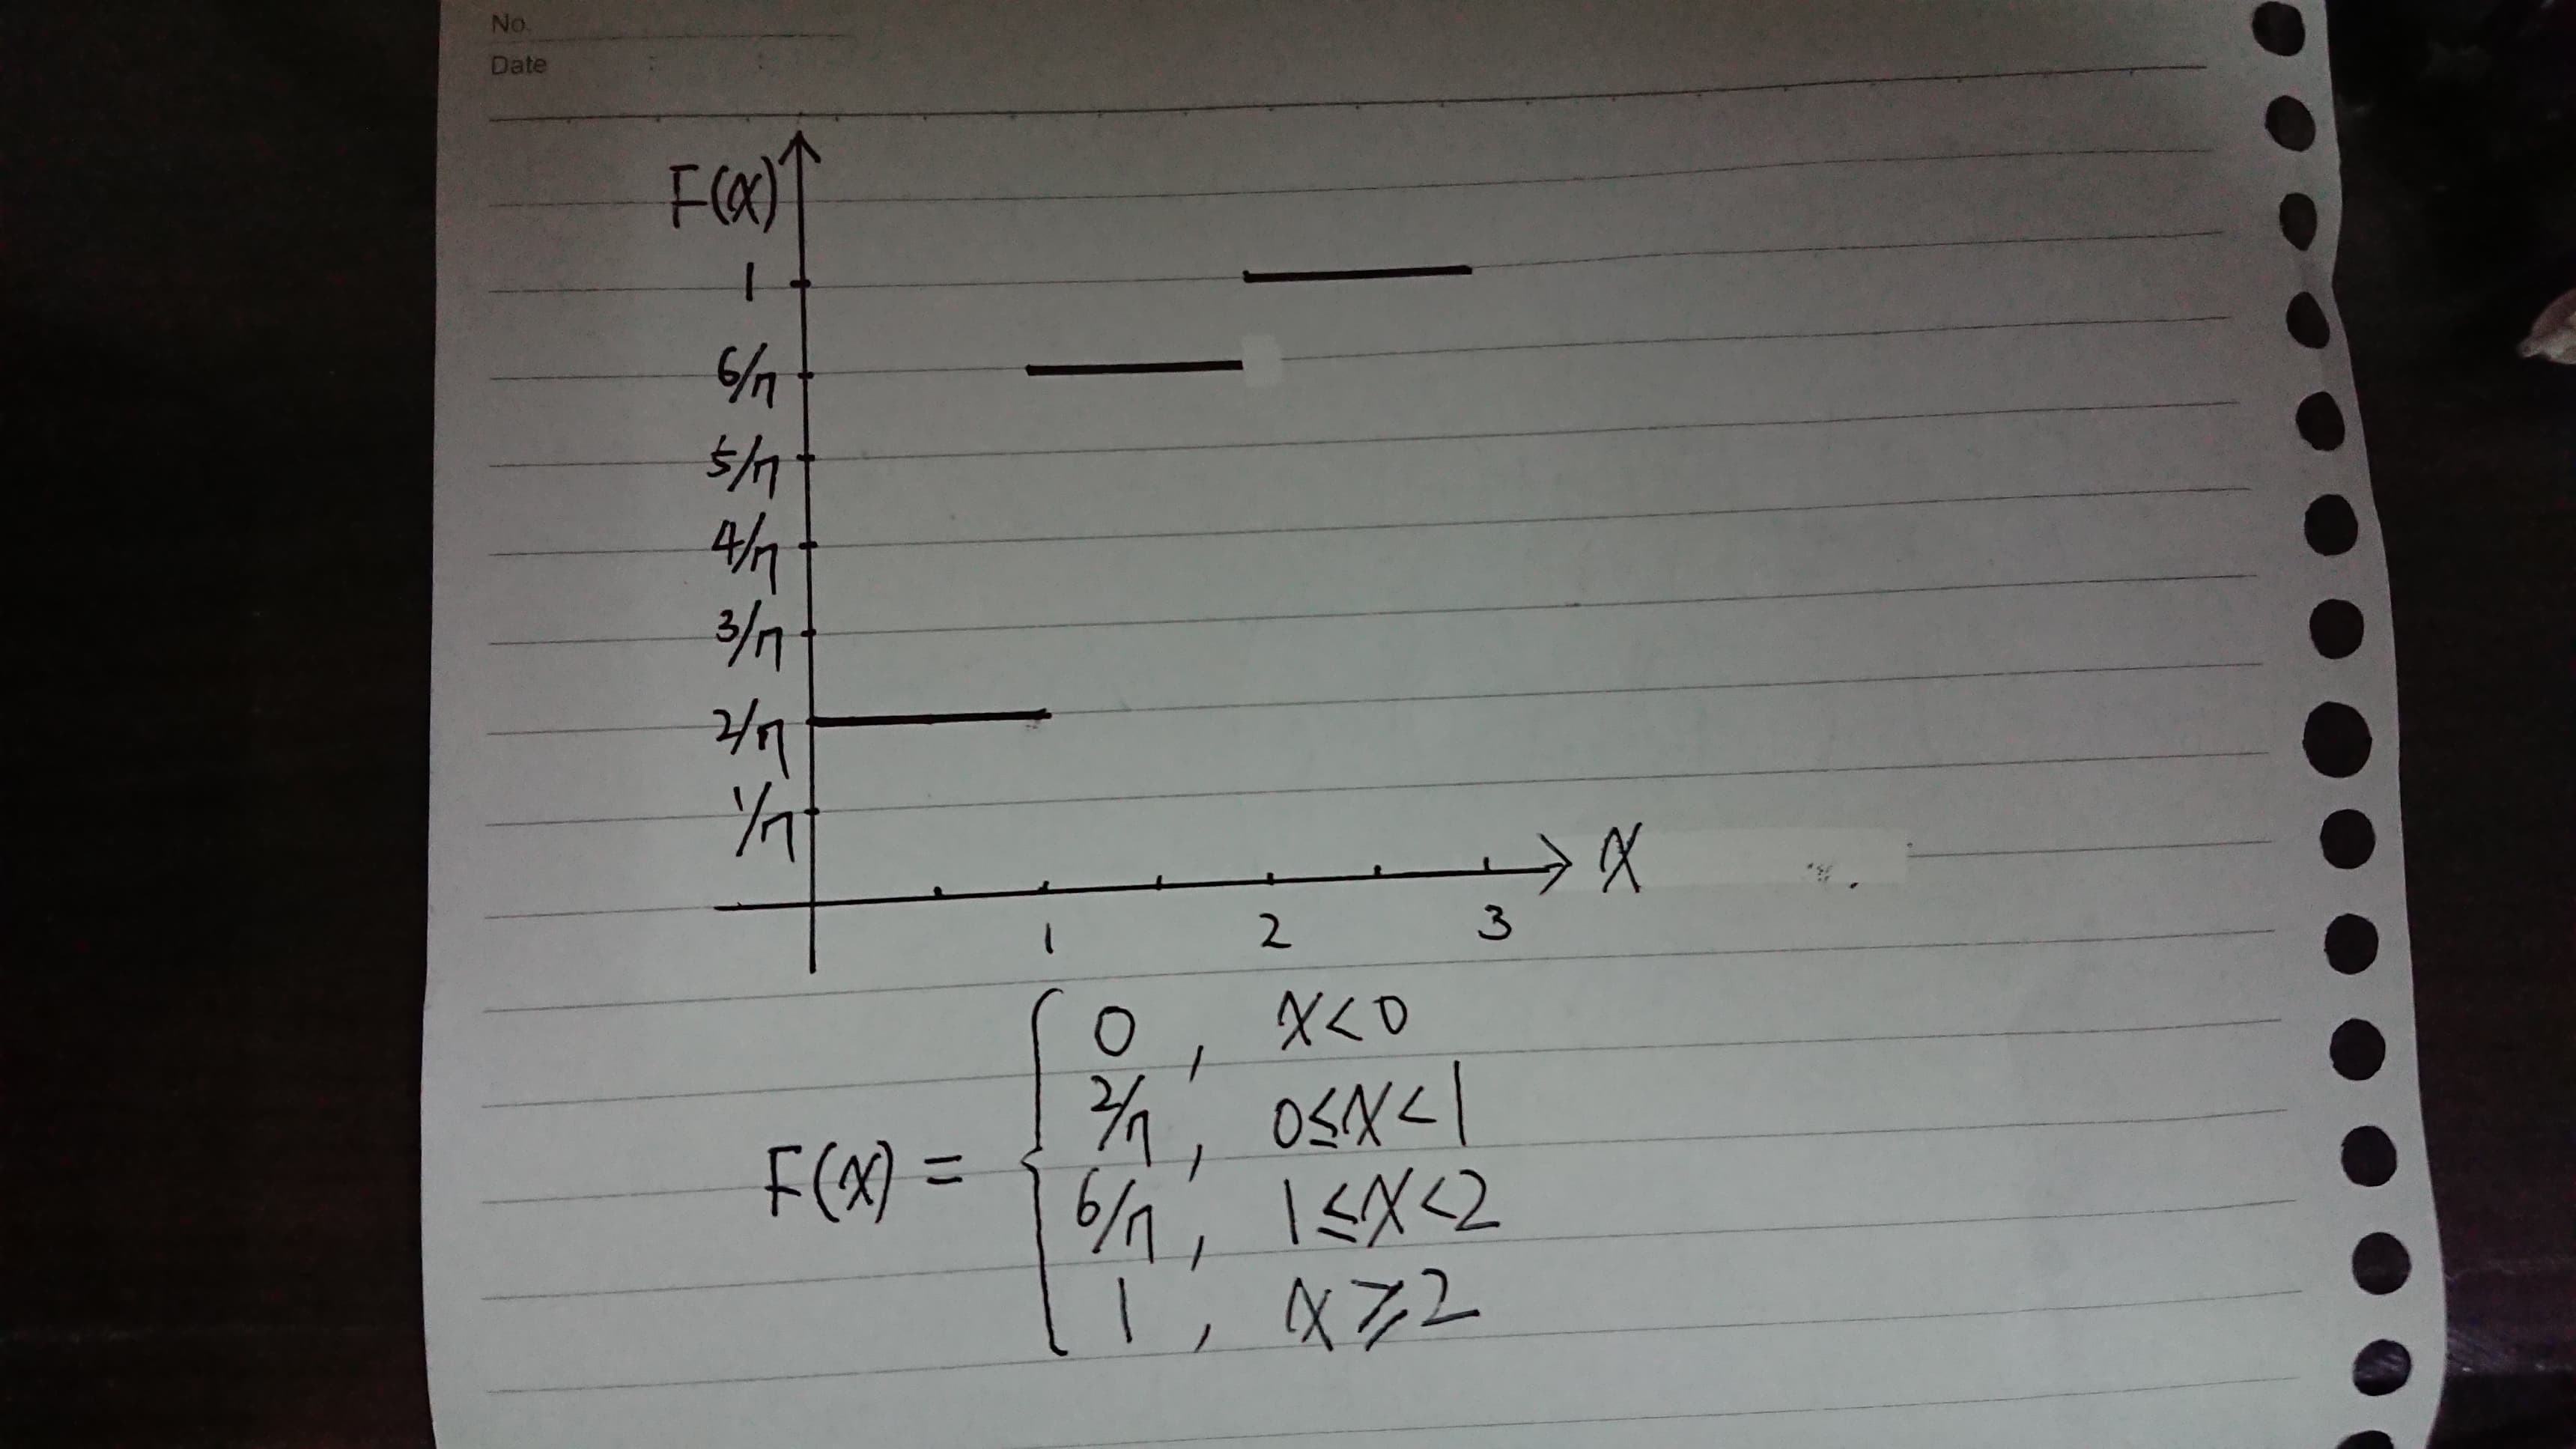 No.
Date : :
F(x)
1
6/7
5/7
4/7
3/7
2/7
1/7
x
1 2 3
0 , x<0
2/7 , 0≤x<1
F(x) =
6/7 , 1≤x<2
1 , x≥2